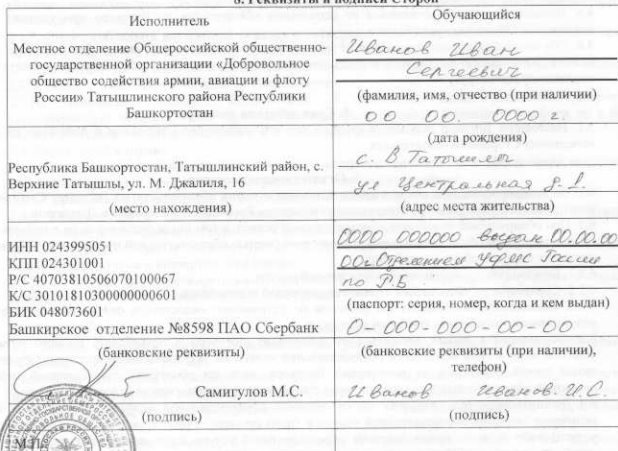 8. Реквизиты и подписи Сторон
Исполнитель
Обучающийся
Местное отделение Общероссийской общественно-
государственной организации «Добровольное
общество содействия армии, авиации и флоту
России» Татышлинского района Республики
Башкортостан
Иванов Иван
Сергеевич
(фамилия, имя, отчество (при наличии)
00 00. 0000 г.
(дата рождения)
Республика Башкортостан, Татышлинский район, с.
Верхние Татышлы, ул. М. Джалиля, 16
(место нахождения)
с. В Татышлы
ул Центральная д. 1.
(адрес места жительства)
ИНН 0243995051
КПП 024301001
Р/С 40703810506070100067
К/С 30101810300000000601
БИК 048073601
Башкирское отделение №8598 ПАО Сбербанк
(банковские реквизиты)
0000 000000 выдан 00.00.00
00г Отделением Уфмс России
по Р.Б
(паспорт: серия, номер, когда и кем выдан)
0-000-000-00-00
(банковские реквизиты (при наличии),
телефон)
Самигулов М.С.
(подпись)
М.П.
Иванов Иванов. И.С.
(подпись)